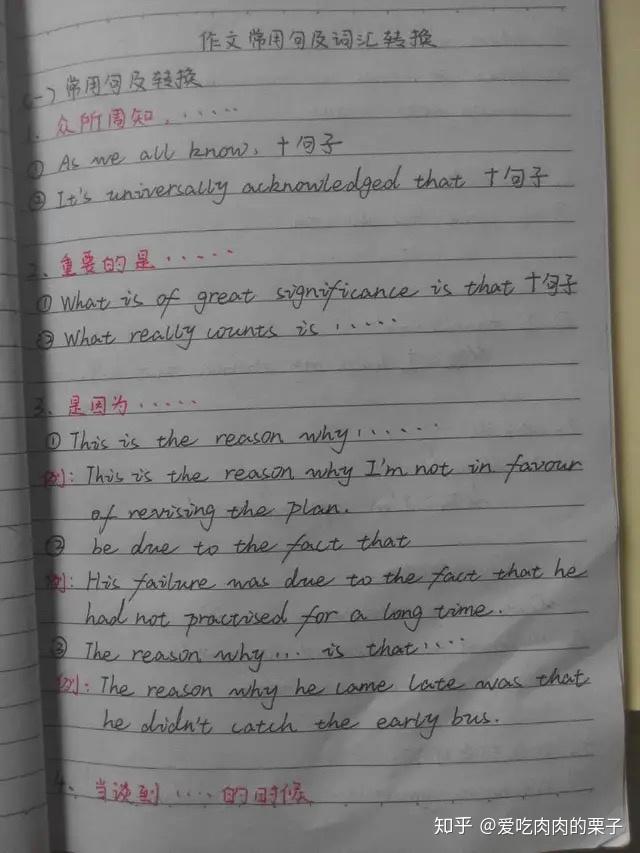 作文常用句及词汇转换
(一) 常用句及转换
1. 众所周知, ······
① As we all know, +句子
② It's universally acknowledged that +句子
2、重要的是 ······
① What is of great significance is that +句子
② What really counts is ······
3、是因为 ······
① This is the reason why ······
例: This is the reason why I'm not in favour
of revising the plan.
② be due to the fact that
例: His failure was due to the fact that he
had not practised for a long time.
③ The reason why... is that ····
例: The reason why he came late was that
he didn't catch the early bus.
4、当谈到 ···· 的时候
知乎 @爱吃肉肉的栗子